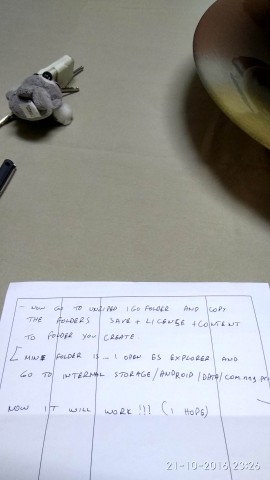 - NOW GO TO UNZIPED IGO FOLDER AND COPY
THE FOLDERS SAVE + LICENSE + CONTENT
TO FOLDER YOU CREATE
[ MINE FOLDER IS - I OPEN ES EXPLORER AND
GO TO INTERNAL STORAGE/ANDROID/DATA/COM.
NOW IT WILL WORK!!! (I HOPE)
21-10-2016 23:26